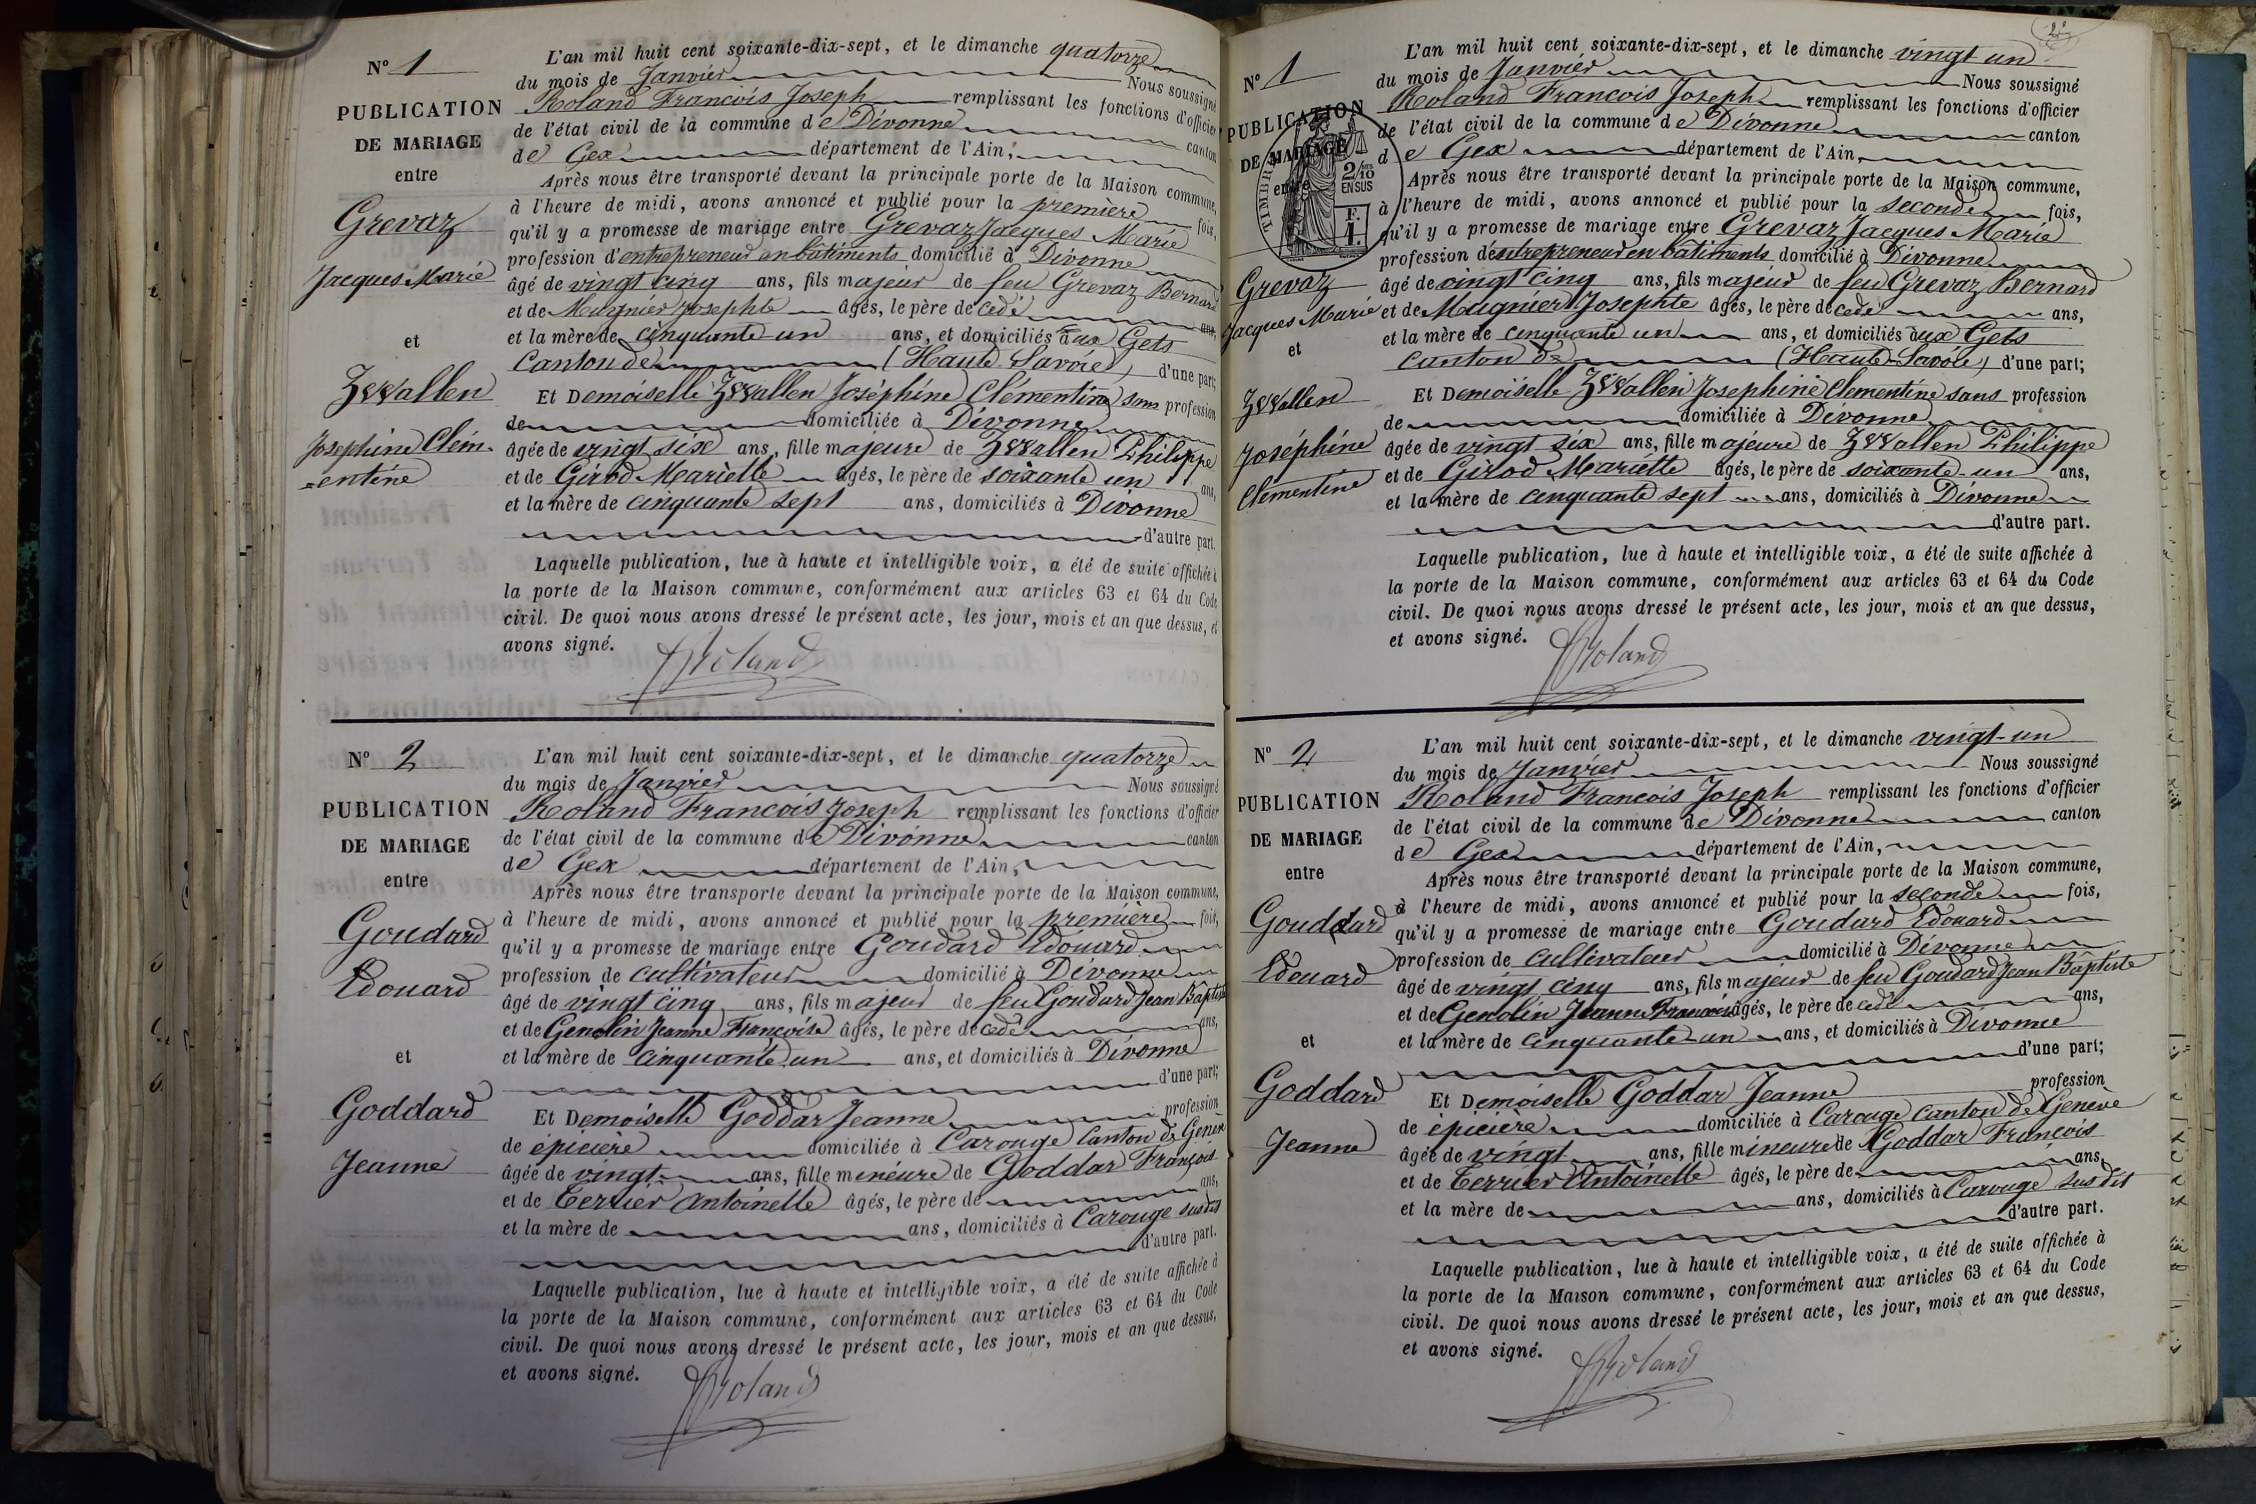 N° 1
PUBLICATION
DE MARIAGE
entre
Grevaz
Jacques Marie
et
Zwallen
Josephine Clém-
=entine
L'an mil huit cent soixante-dix-sept, et le dimanche quatorze
du mois de Janvier Nous soussigné
Roland François Joseph remplissant les fonctions d'officier
de l'état civil de la commune de Divonne canton
de Gex département de l'Ain,
Après nous être transporté devant la principale porte de la Maison commune,
à l'heure de midi, avons annoncé et publié pour la première fois,
qu'il y a promesse de mariage entre Grevaz Jacques Marie
profession d'entrepreneur en bâtiments domicilié à Divonne
âgé de vingt cinq ans, fils majeur de feu Grevaz Bernard
et de Mugnier Josephte âgés, le père décedé ans,
et la mère de cinquante un ans, et domiciliés aux Gets
canton de (Haute Savoie) d'une part;
Et Demoiselle Zwallen Joséphine Clémentine sans profession
de domiciliée à Divonne
âgée de vingt six ans, fille majeure de Zwallen Philippe
et de Girod Mariette âgés, le père de soixante un ans,
et la mère de cinquante sept ans, domiciliés à Divonne
d'autre part.
Laquelle publication, lue à haute et intelligible voix, a été de suite affichée à
la porte de la Maison commune, conformément aux articles 63 et 64 du Code
civil. De quoi nous avons dressé le présent acte, les jour, mois et an que dessus, et
avons signé.
Roland
N° 2
PUBLICATION
DE MARIAGE
entre
Goudard
Edouard
et
Goddard
Jeanne
L'an mil huit cent soixante-dix-sept, et le dimanche quatorze
du mois de Janvier Nous soussigné
Roland François Joseph remplissant les fonctions d'officier
de l'état civil de la commune de Divonne canton
de Gex département de l'Ain,
Après nous être transporté devant la principale porte de la Maison commune,
à l'heure de midi, avons annoncé et publié pour la première fois,
qu'il y a promesse de mariage entre Goudard Edouard
profession de cultivateur domicilié à Divonne
âgé de vingt cinq ans, fils majeur de feu Goudard Jean Baptiste
et de Genolin Jeanne Françoise âgés, le père décedé ans,
et la mère de cinquante un ans, et domiciliés à Divonne
d'une part;
Et Demoiselle Goddar Jeanne profession
de épicière domiciliée à Carouge Canton de Genève
âgée de vingt ans, fille mineure de Goddar François
et de Terrier Antoinette âgés, le père de ans,
et la mère de ans, domiciliés à Carouge sus dit
d'autre part.
Laquelle publication, lue à haute et intelligible voix, a été de suite affichée à
la porte de la Maison commune, conformément aux articles 63 et 64 du Code
civil. De quoi nous avons dressé le présent acte, les jour, mois et an que dessus,
et avons signé.
Roland
N° 1
PUBLICATION
DE MARIAGE
entre
TIMBRE
2/10
EN SUS
F.
1.
Grevaz
Jacques Marie
et
Zwallen
Joséphine
Clémentine
L'an mil huit cent soixante-dix-sept, et le dimanche vingt un
du mois de Janvier Nous soussigné
Roland François Joseph remplissant les fonctions d'officier
de l'état civil de la commune de Divonne canton
de Gex département de l'Ain,
Après nous être transporté devant la principale porte de la Maison commune,
à l'heure de midi, avons annoncé et publié pour la seconde fois,
qu'il y a promesse de mariage entre Grevaz Jacques Marie
profession d'entrepreneur en bâtiments domicilié à Divonne
âgé de vingt cinq ans, fils majeur de feu Grevaz Bernard
et de Mugnier Josephte âgés, le père décedé ans,
et la mère de cinquante un ans, et domiciliés aux Gets
canton de (Haute-Savoie) d'une part;
Et Demoiselle Zwallen Josephine Clementine sans profession
de domiciliée à Divonne
âgée de vingt six ans, fille majeure de Zwallen Philippe
et de Girod Mariette âgés, le père de soixante un ans,
et la mère de cinquante sept ans, domiciliés à Divonne
d'autre part.
Laquelle publication, lue à haute et intelligible voix, a été de suite affichée à
la porte de la Maison commune, conformément aux articles 63 et 64 du Code
civil. De quoi nous avons dressé le présent acte, les jour, mois et an que dessus,
et avons signé.
Roland
N° 2
PUBLICATION
DE MARIAGE
entre
Goudard
Edouard
et
Goddard
Jeanne
L'an mil huit cent soixante-dix-sept, et le dimanche vingt-un
du mois de Janvier Nous soussigné
Roland François Joseph remplissant les fonctions d'officier
de l'état civil de la commune de Divonne canton
de Gex département de l'Ain,
Après nous être transporté devant la principale porte de la Maison commune,
à l'heure de midi, avons annoncé et publié pour la seconde fois,
qu'il y a promesse de mariage entre Goudard Edouard
profession de cultivateur domicilié à Divonne
âgé de vingt cinq ans, fils majeur de feu Goudard Jean Baptiste
et de Genolin Jeanne Françoise âgés, le père décedé ans,
et la mère de cinquante un ans, et domiciliés à Divonne
d'une part;
Et Demoiselle Goddar Jeanne profession
de épicière domiciliée à Carouge canton de Genève
âgée de vingt ans, fille mineure de Goddar François
et de Terrier Antoinette âgés, le père de ans,
et la mère de ans, domiciliés à Carouge sus dit
d'autre part.
Laquelle publication, lue à haute et intelligible voix, a été de suite affichée à
la porte de la Maison commune, conformément aux articles 63 et 64 du Code
civil. De quoi nous avons dressé le présent acte, les jour, mois et an que dessus,
et avons signé.
Roland